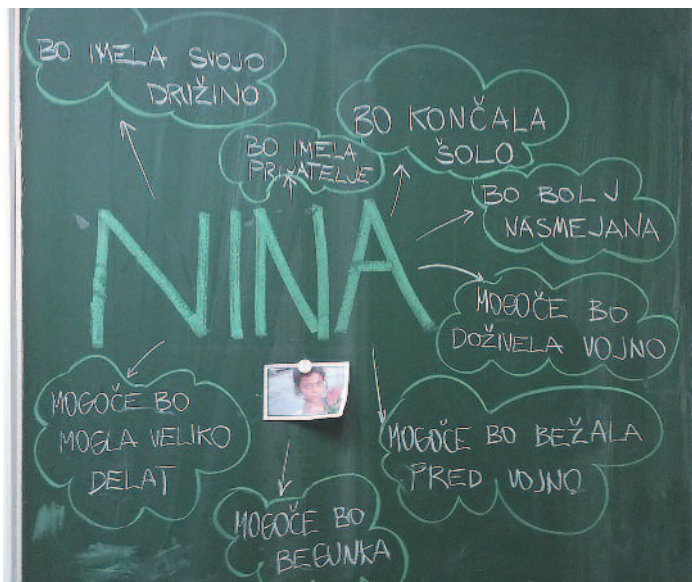 BO IMELA SVOJO
DRUŽINO
BO IMELA
PRIJATELJE
BO KONČALA
ŠOLO
BO BOLJ
NASMEJANA
NINA
MOGOČE BO
DOŽIVELA VOJNO
MOGOČE BO
MOGLA VELIKO
DELAT
MOGOČE BO BEŽALA
PRED VOJNO
MOGOČE BO
BEGUNKA